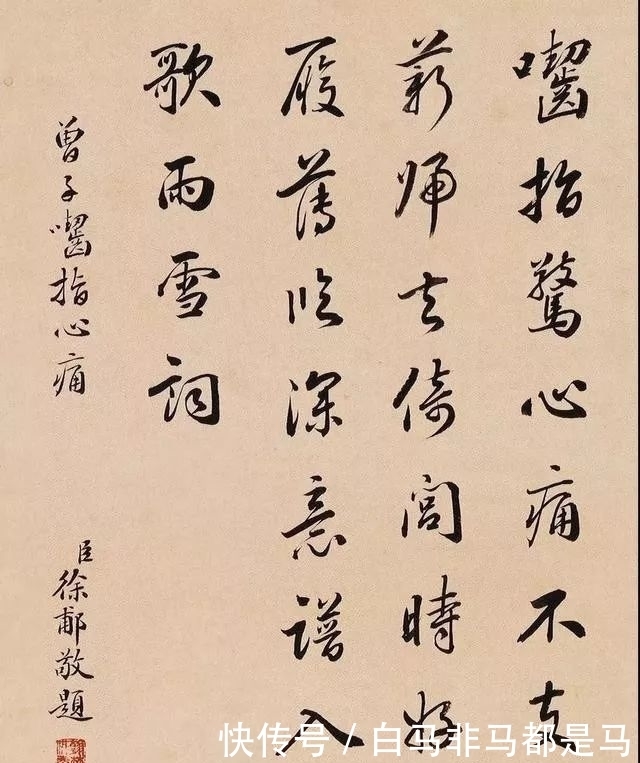 囓指驚心痛不支
薪歸去倚閭時好
履薄臨深意譜入
歌雨雪詞
曾子囓指心痛
臣徐郙敬題
快传号 / 白马非马都是马